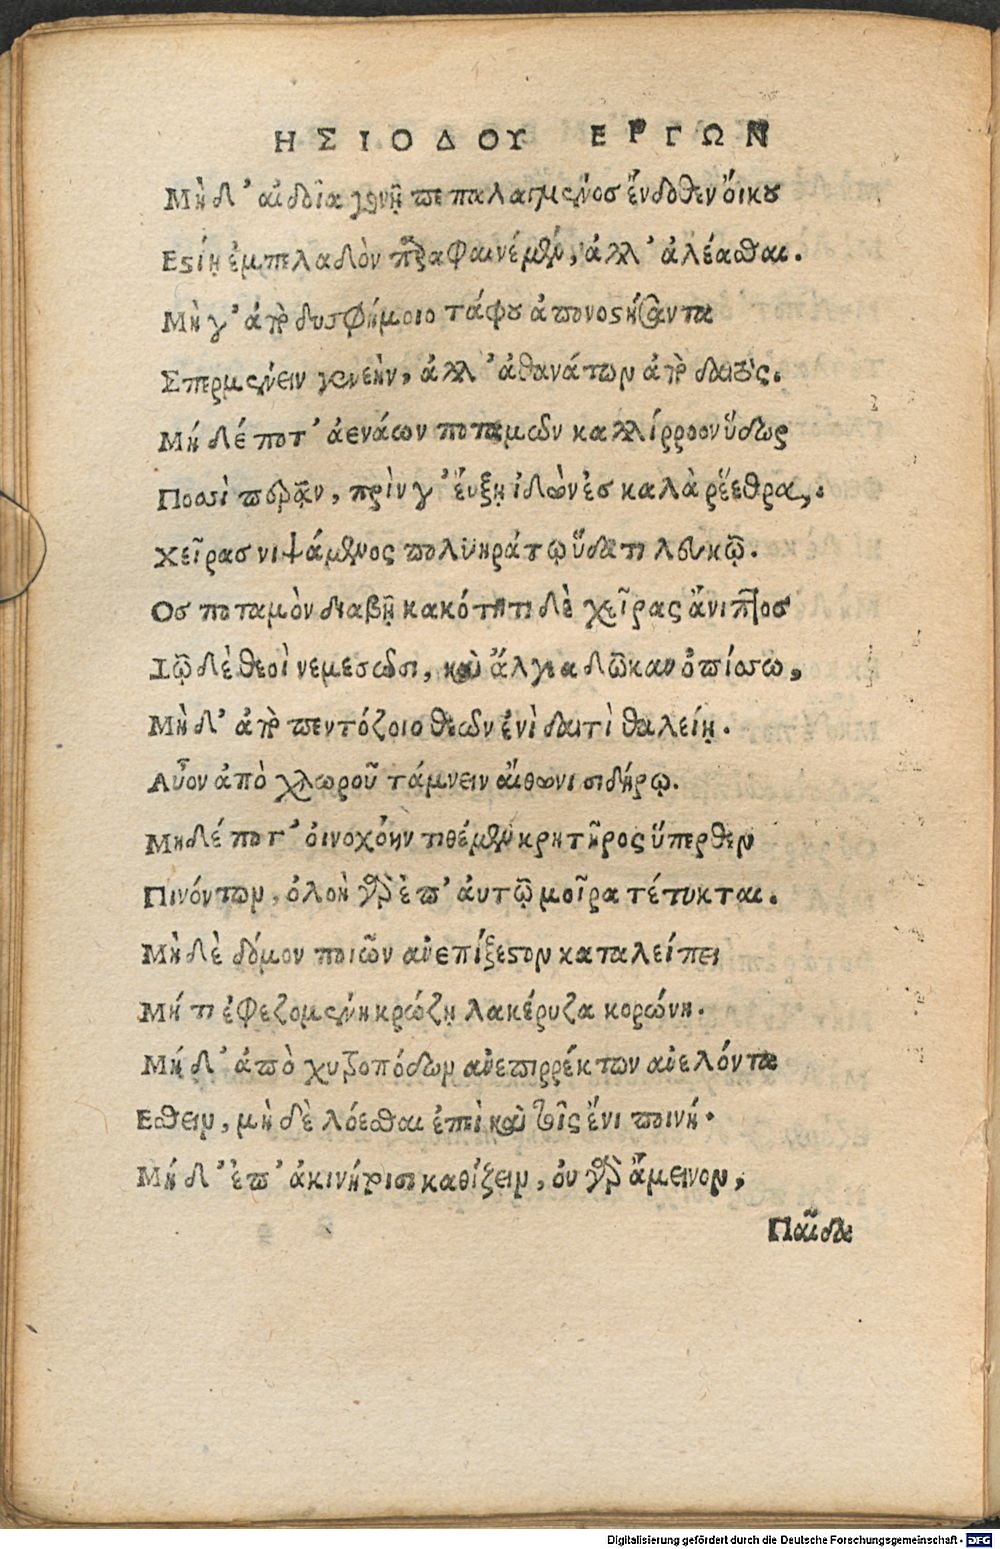 ΗΣΙΟΔΟΥ ΕΡΓΩΝ
Μὴ δ' αἰδοῖα γονῇ πεπαλαγμένος ἔνδοθεν ὄικου
Εστίῃ ἐμπελαδὸν παραφαινέμεν, ἀλλ' ἀλέασθαι.
Μὴ γ' ἀπὸ δυσφήμοιο τάφου ἀπονοστήσαντα
Σπερμαίνειν γενεὴν, ἀλλ' ἀθανάτων ἀπὸ δαιτός.
Μή δέ ποτ' ἀενάων ποταμῶν καλλίρροον ὕδωρ
Ποσσὶ περᾷν, πρὶν γ' ἔυξῃ ἰδὼν ἐσ καλὰ ῥέεθρα,.
Χεῖρασ νιψάμενος πολυηράτῳ ὕδατι λευκῷ.
Οσ ποταμὸν διαβῇ κακότητι δὲ χεῖρας ἄνιπτος
Τῷ δὲ θεοὶ νεμεσῶσι, καὶ ἄλγεα δῶκαν ὀπίσσω,
Μὴ δ' ἀπὸ πεντόζοιο θεῶν ἐνὶ δαιτὶ θαλείῃ.
Αὖον ἀπὸ χλωροῦ τάμνειν αἴθωνι σιδήρῳ.
Μηδέ ποτ' ὀινοχόην τιθέμεν κρητῆρος ὕπερθεν
Πινόντων, ὀλοὴ γὰρ ἐπ' ἀυτῷ μοῖρα τέτυκται.
Μὴ δὲ δόμον ποιῶν ἀνεπίξεστον καταλείπειν
Μή τι ἐφεζομένη κρώζῃ λακέρυζα κορώνη.
Μή δ' ἀπὸ χυτροπόδων ἀνεπιρρέκτων ἀνελόντα
Εσθειν, μὴ δὲ λόεσθαι ἐπεὶ καὶ τοῖς ἔνι ποινή.
Μή δ' ἐπ' ἀκινήτοισι καθίζειν, ὀυ γὰρ ἄμεινον,
Παῖδα
Digitalisierung gefördert durch die Deutsche Forschungsgemeinschaft - DFG